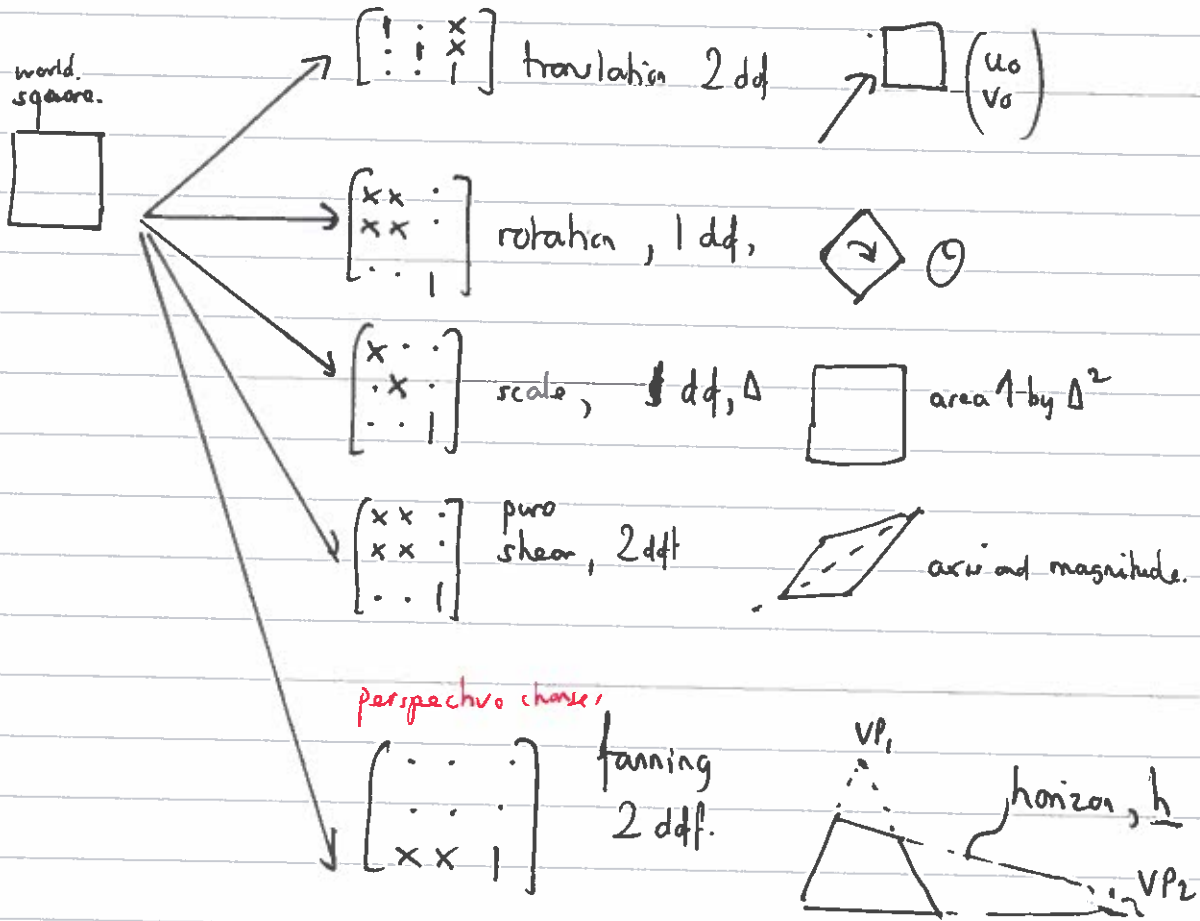 world.
square.
[1 · x
· 1 x
· · 1]
translation 2 dof
(u₀
v₀)
[x x ·
x x ·
· · 1]
rotation, 1 dof,
θ
[x · ·
· x ·
· · 1]
scale, 1 dof, Δ
area ↑ by Δ²
[x x ·
x x ·
· · 1]
pure
shear, 2 dof
axis and magnitude.
perspective changes
[· · ·
· · ·
x x 1]
fanning
2 dof.
VP₁
horizon, h
VP₂